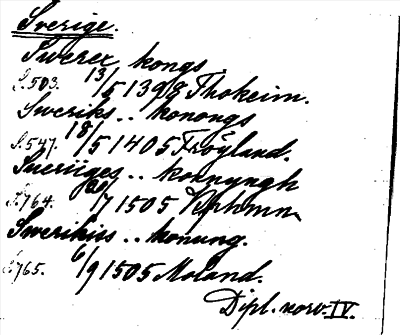 Sverige.
Swerex kongs
S.503. 13/5 1398 Thokeim.
Sweriks .. konongs
S.547. 18/5 1405 Frøyland.
Sueriiges .. konnyngh
S.764. /7 1505
Swerikiss .. konung.
S.765. 6/9 1505 Moland.
Dipl. norv. IV.